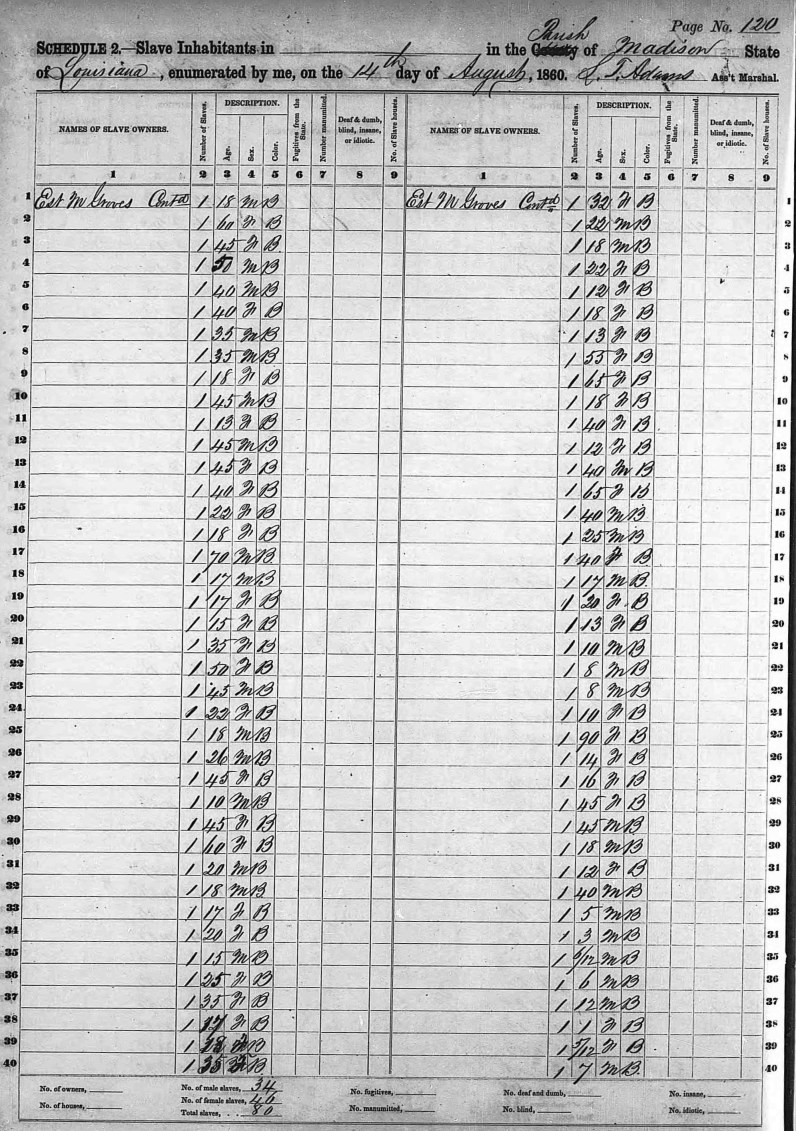 Page No. 120
SCHEDULE 2.—Slave Inhabitants in 1 in the County Parish of Madison State
of Louisiana, enumerated by me, on the 14th day of August, 1860. L. T. Adams Ass't Marshal.
NAMES OF SLAVE OWNERS. Number of Slaves. DESCRIPTION. Age. Sex. Color. Fugitives from the State. Number manumitted. Deaf & dumb, blind, insane, or idiotic. No. of Slave houses. NAMES OF SLAVE OWNERS. Number of Slaves. DESCRIPTION. Age. Sex. Color. Fugitives from the State. Number manumitted. Deaf & dumb, blind, insane, or idiotic. No. of Slave houses.
1 2 3 4 5 6 7 8 9 1 2 3 4 5 6 7 8 9
1 Est M Groves Contd 1 18 M B Est M Groves Contd 1 32 F B 1
2 1 60 F B 1 22 M B 2
3 1 45 F B 1 18 M B 3
4 1 50 M B 1 22 F B 4
5 1 40 M B 1 12 F B 5
6 1 40 F B 1 18 F B 6
7 1 35 M B 1 13 F B 7
8 1 35 M B 1 55 F B 8
9 1 18 F B 1 65 F B 9
10 1 45 M B 1 18 F B 10
11 1 13 F B 1 40 F B 11
12 1 45 M B 1 12 F B 12
13 1 45 F B 1 40 M B 13
14 1 40 F B 1 65 F B 14
15 1 22 F B 1 40 M B 15
16 1 18 F B 1 25 M B 16
17 1 70 M B 1 40 F B 17
18 1 17 M B 1 17 M B 18
19 1 17 F B 1 20 F B 19
20 1 15 F B 1 13 F B 20
21 1 35 F B 1 10 M B 21
22 1 50 F B 1 8 M B 22
23 1 45 M B 1 8 M B 23
24 1 22 F B 1 10 F B 24
25 1 18 M B 1 90 F B 25
26 1 26 M B 1 14 F B 26
27 1 45 F B 1 16 F B 27
28 1 10 M B 1 45 F B 28
29 1 45 F B 1 45 M B 29
30 1 60 F B 1 18 M B 30
31 1 20 M B 1 12 F B 31
32 1 18 M B 1 40 M B 32
33 1 17 F B 1 5 M B 33
34 1 20 F B 1 3 M B 34
35 1 15 M B 1 /12 M B 35
36 1 25 F B 1 6 M B 36
37 1 35 F B 1 12 M B 37
38 1 17 F B 1 1 F B 38
39 1 18 B 1 /12 F B 39
40 1 35 B 1 7 M B 40
No. of owners, No. of male slaves, 34 No. fugitives, No. deaf and dumb, No. insane,
No. of houses, No. of female slaves, 46 No. manumitted, No. blind, No. idiotic,
Total slaves, 80